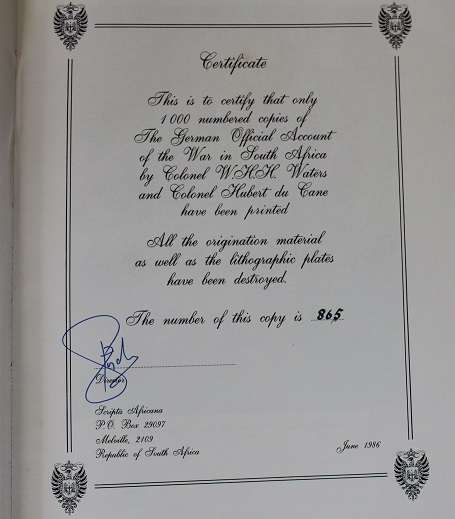 Certificate
This is to certify that only
1 000 numbered copies of
The German Official Account
of the War in South Africa
by Colonel W.H.H. Waters
and Colonel Hubert du Cane
have been printed
All the origination material
as well as the lithographic plates
have been destroyed.
The number of this copy is 865
Director
Scripta Africana
P.O. Box 29097
Melville, 2109
Republic of South Africa
June 1986